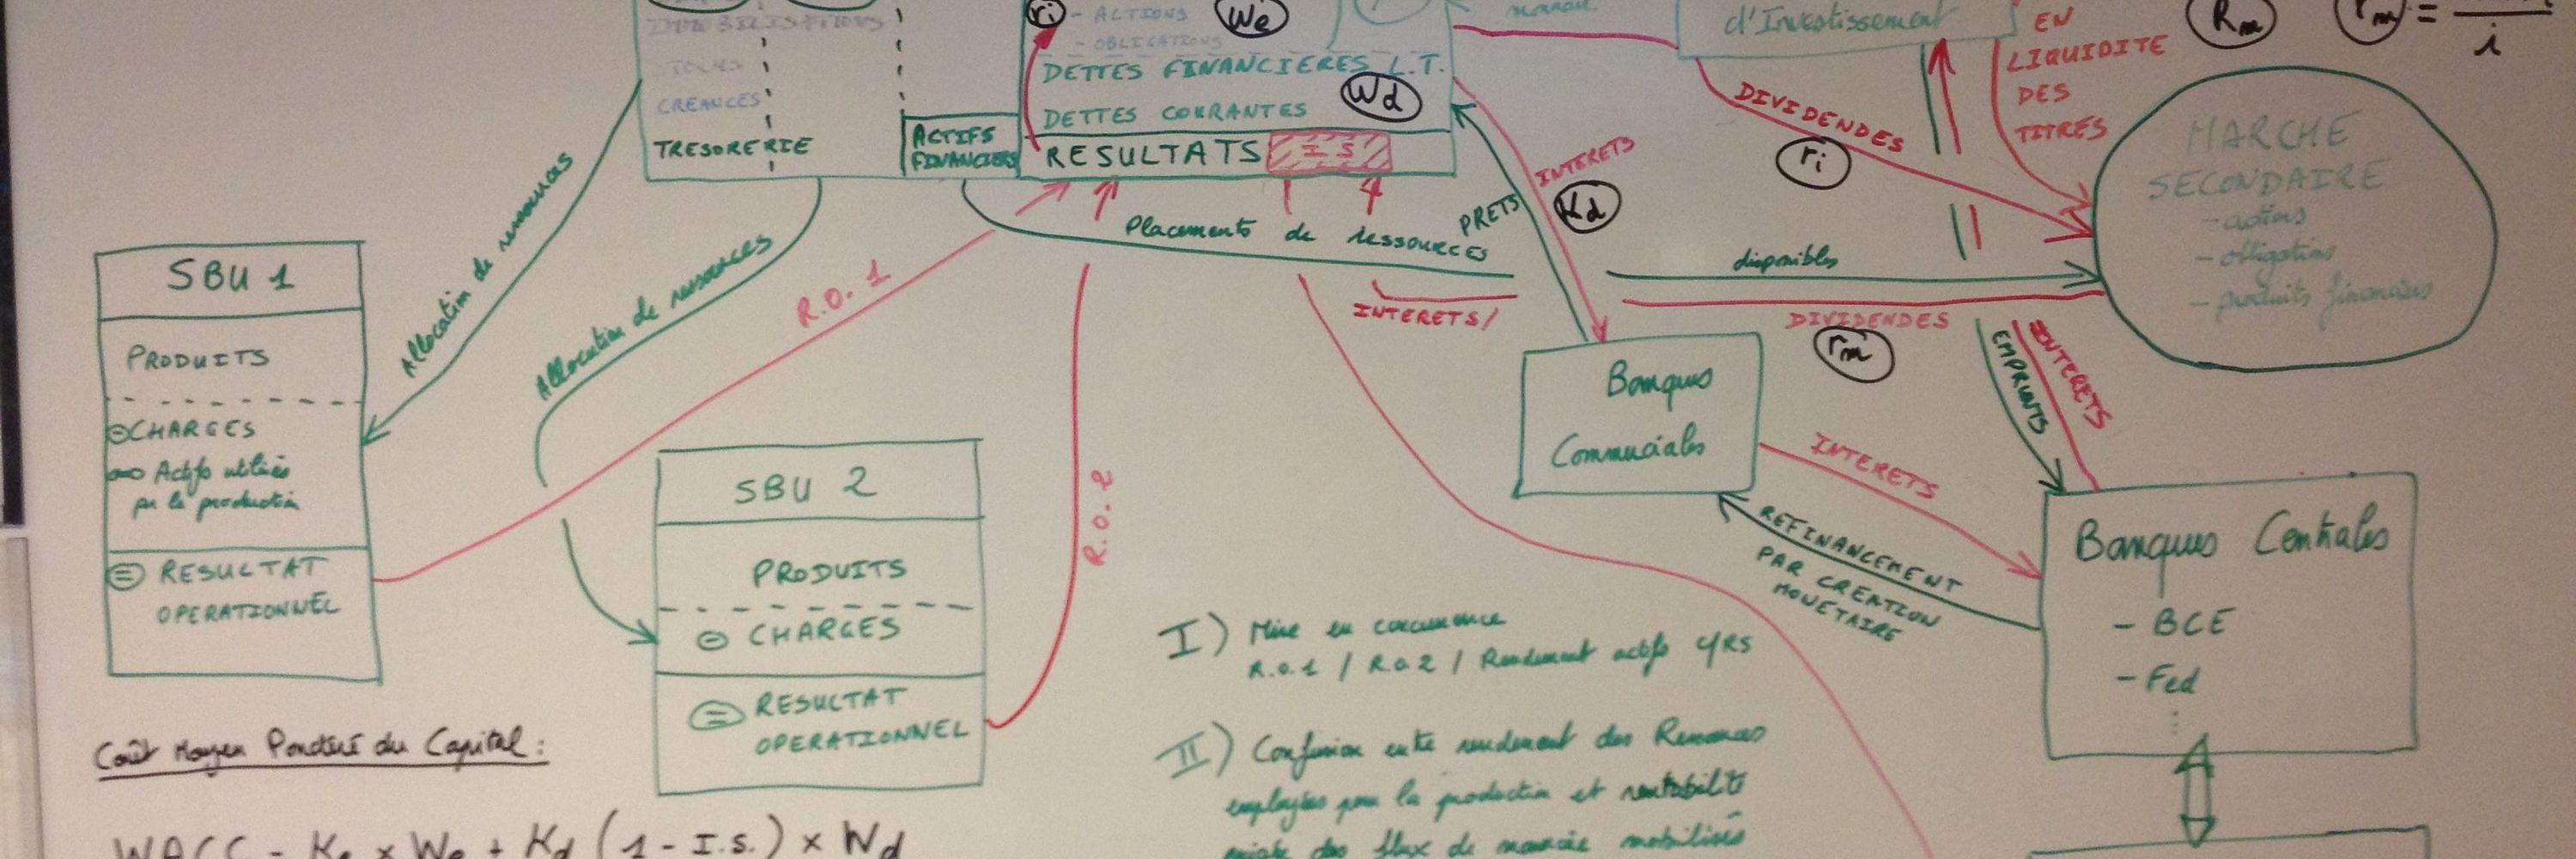 IMMOBILISATIONS
STOCKS
CREANCES
TRESORERIE
ACTIFS
FINANCIERS
ri
- ACTIONS
- OBLIGATIONS
We
DETTES FINANCIERES L.T.
DETTES COURANTES
Wd
RESULTATS
I S
d'Investissement
EN
LIQUIDITE
DES
TITRES
Rm
rm =
i
DIVIDENDES
ri
MARCHE
SECONDAIRE
- actions
- obligations
- produits financiers
INTERETS
Kd
PRETS
Placements de ressources
disponibles
INTERETS/
DIVIDENDES
rm
EMPRUNTS
INTERETS
Allocation de ressources
Allocation de ressources
R.O. 1
R.O. 2
SBU 1
PRODUITS
- CHARGES
Actifs utilisés
pr la production
= RESULTAT
OPERATIONNEL
SBU 2
PRODUITS
- CHARGES
= RESULTAT
OPERATIONNEL
Banques
Commerciales
INTERETS
REFINANCEMENT
PAR CREATION
MONETAIRE
Banques Centrales
- BCE
- Fed
I) Mise en concurrence
R.O.1 / R.O.2 / Rendement actifs
II) Confusion entre rendement des Ressources
employées pour la production et rentabilité
des flux de monnaie mobilisés
Coût Moyen Pondéré du Capital :
WACC = Ke x We + Kd (1 - I.S.) x Wd